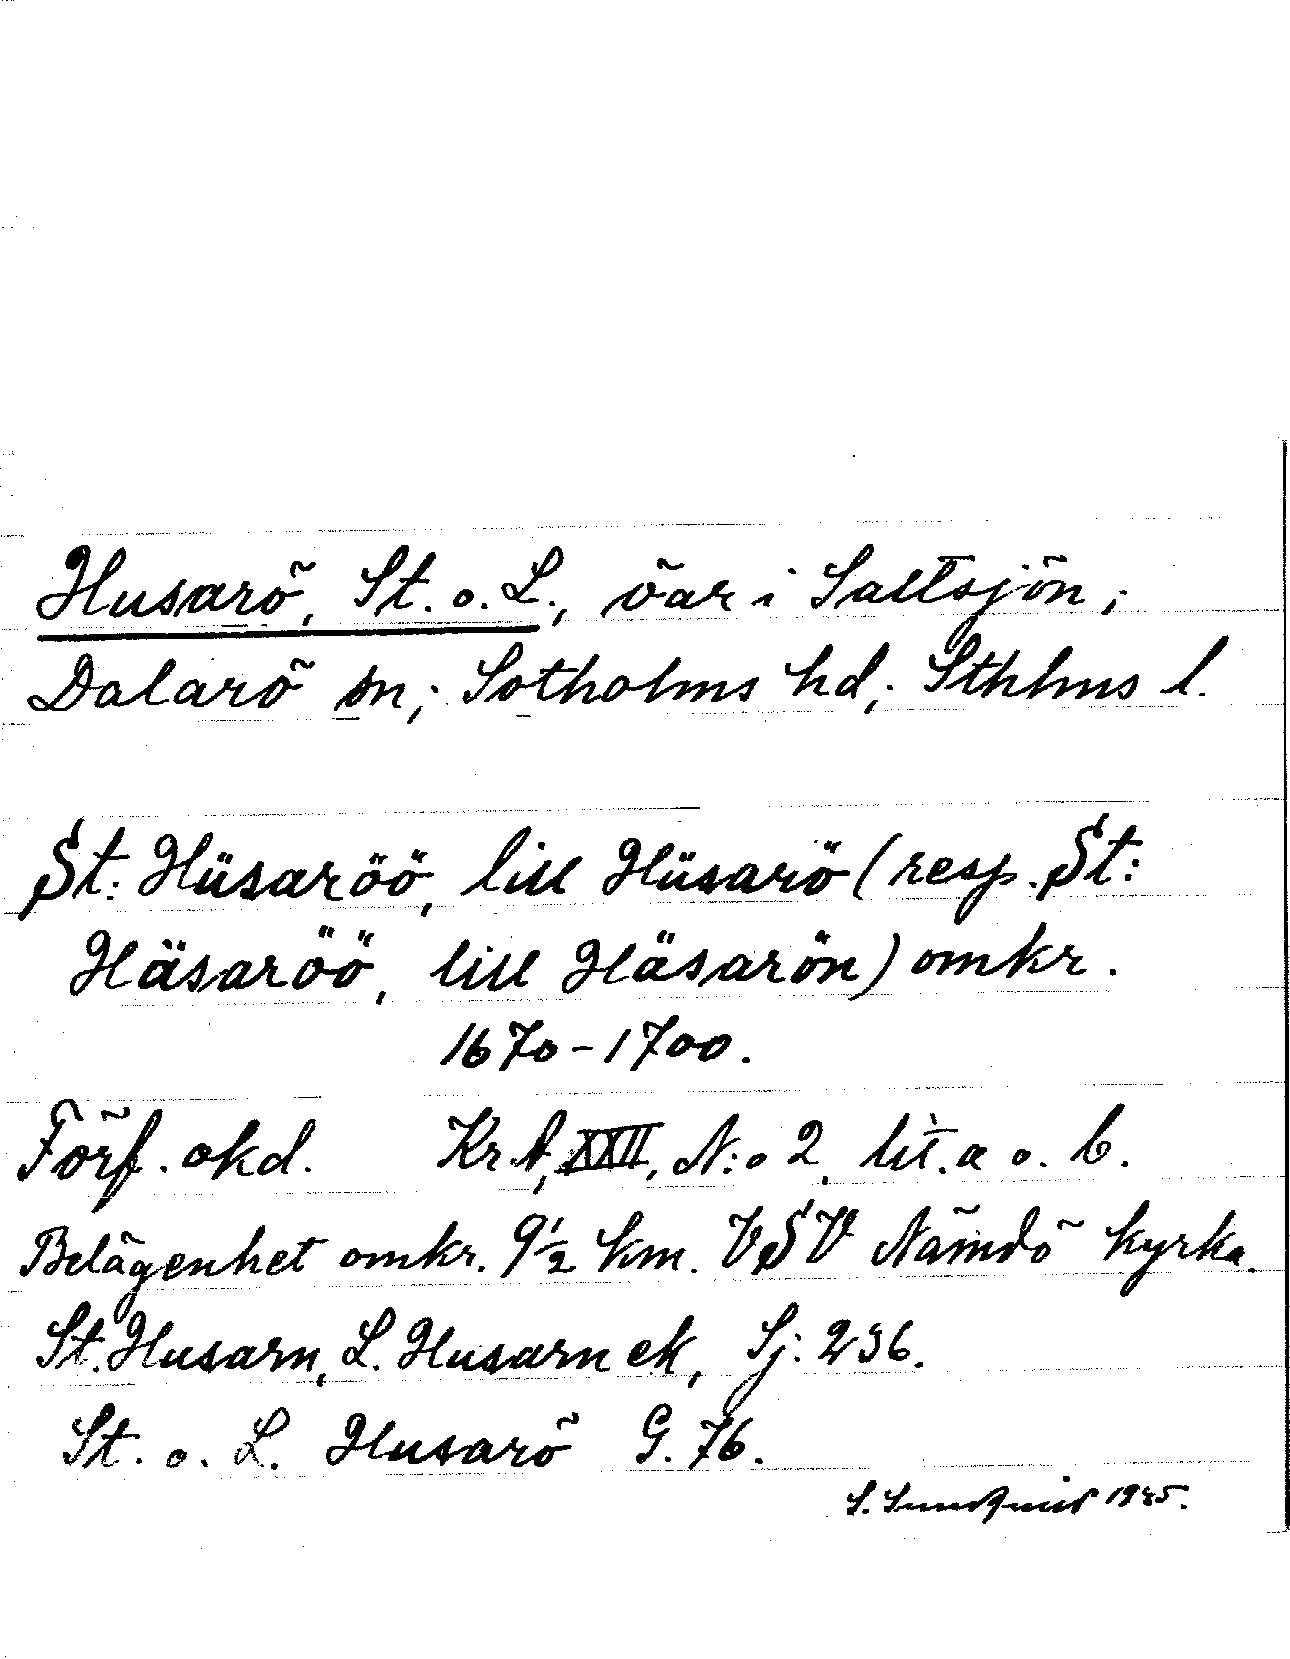 Husarö, St. o. L., öar i Saltsjön;
Dalarö sn; Sotholms hd; Sthlms l.
St: Hüsaröö, lill Hüsarö (resp. St:
Häsaröö, lill Häsarön) omkr.
1670-1700.
Förf. okd. Kr.A, XXII, N:o 2, lit. a o. b.
Belägenhet omkr. 9½ km. VSV Nämdö kyrka.
St. Husarn, L. Husarn ek, Sj: 236.
St. o. L. Husarö G. 76.
S.